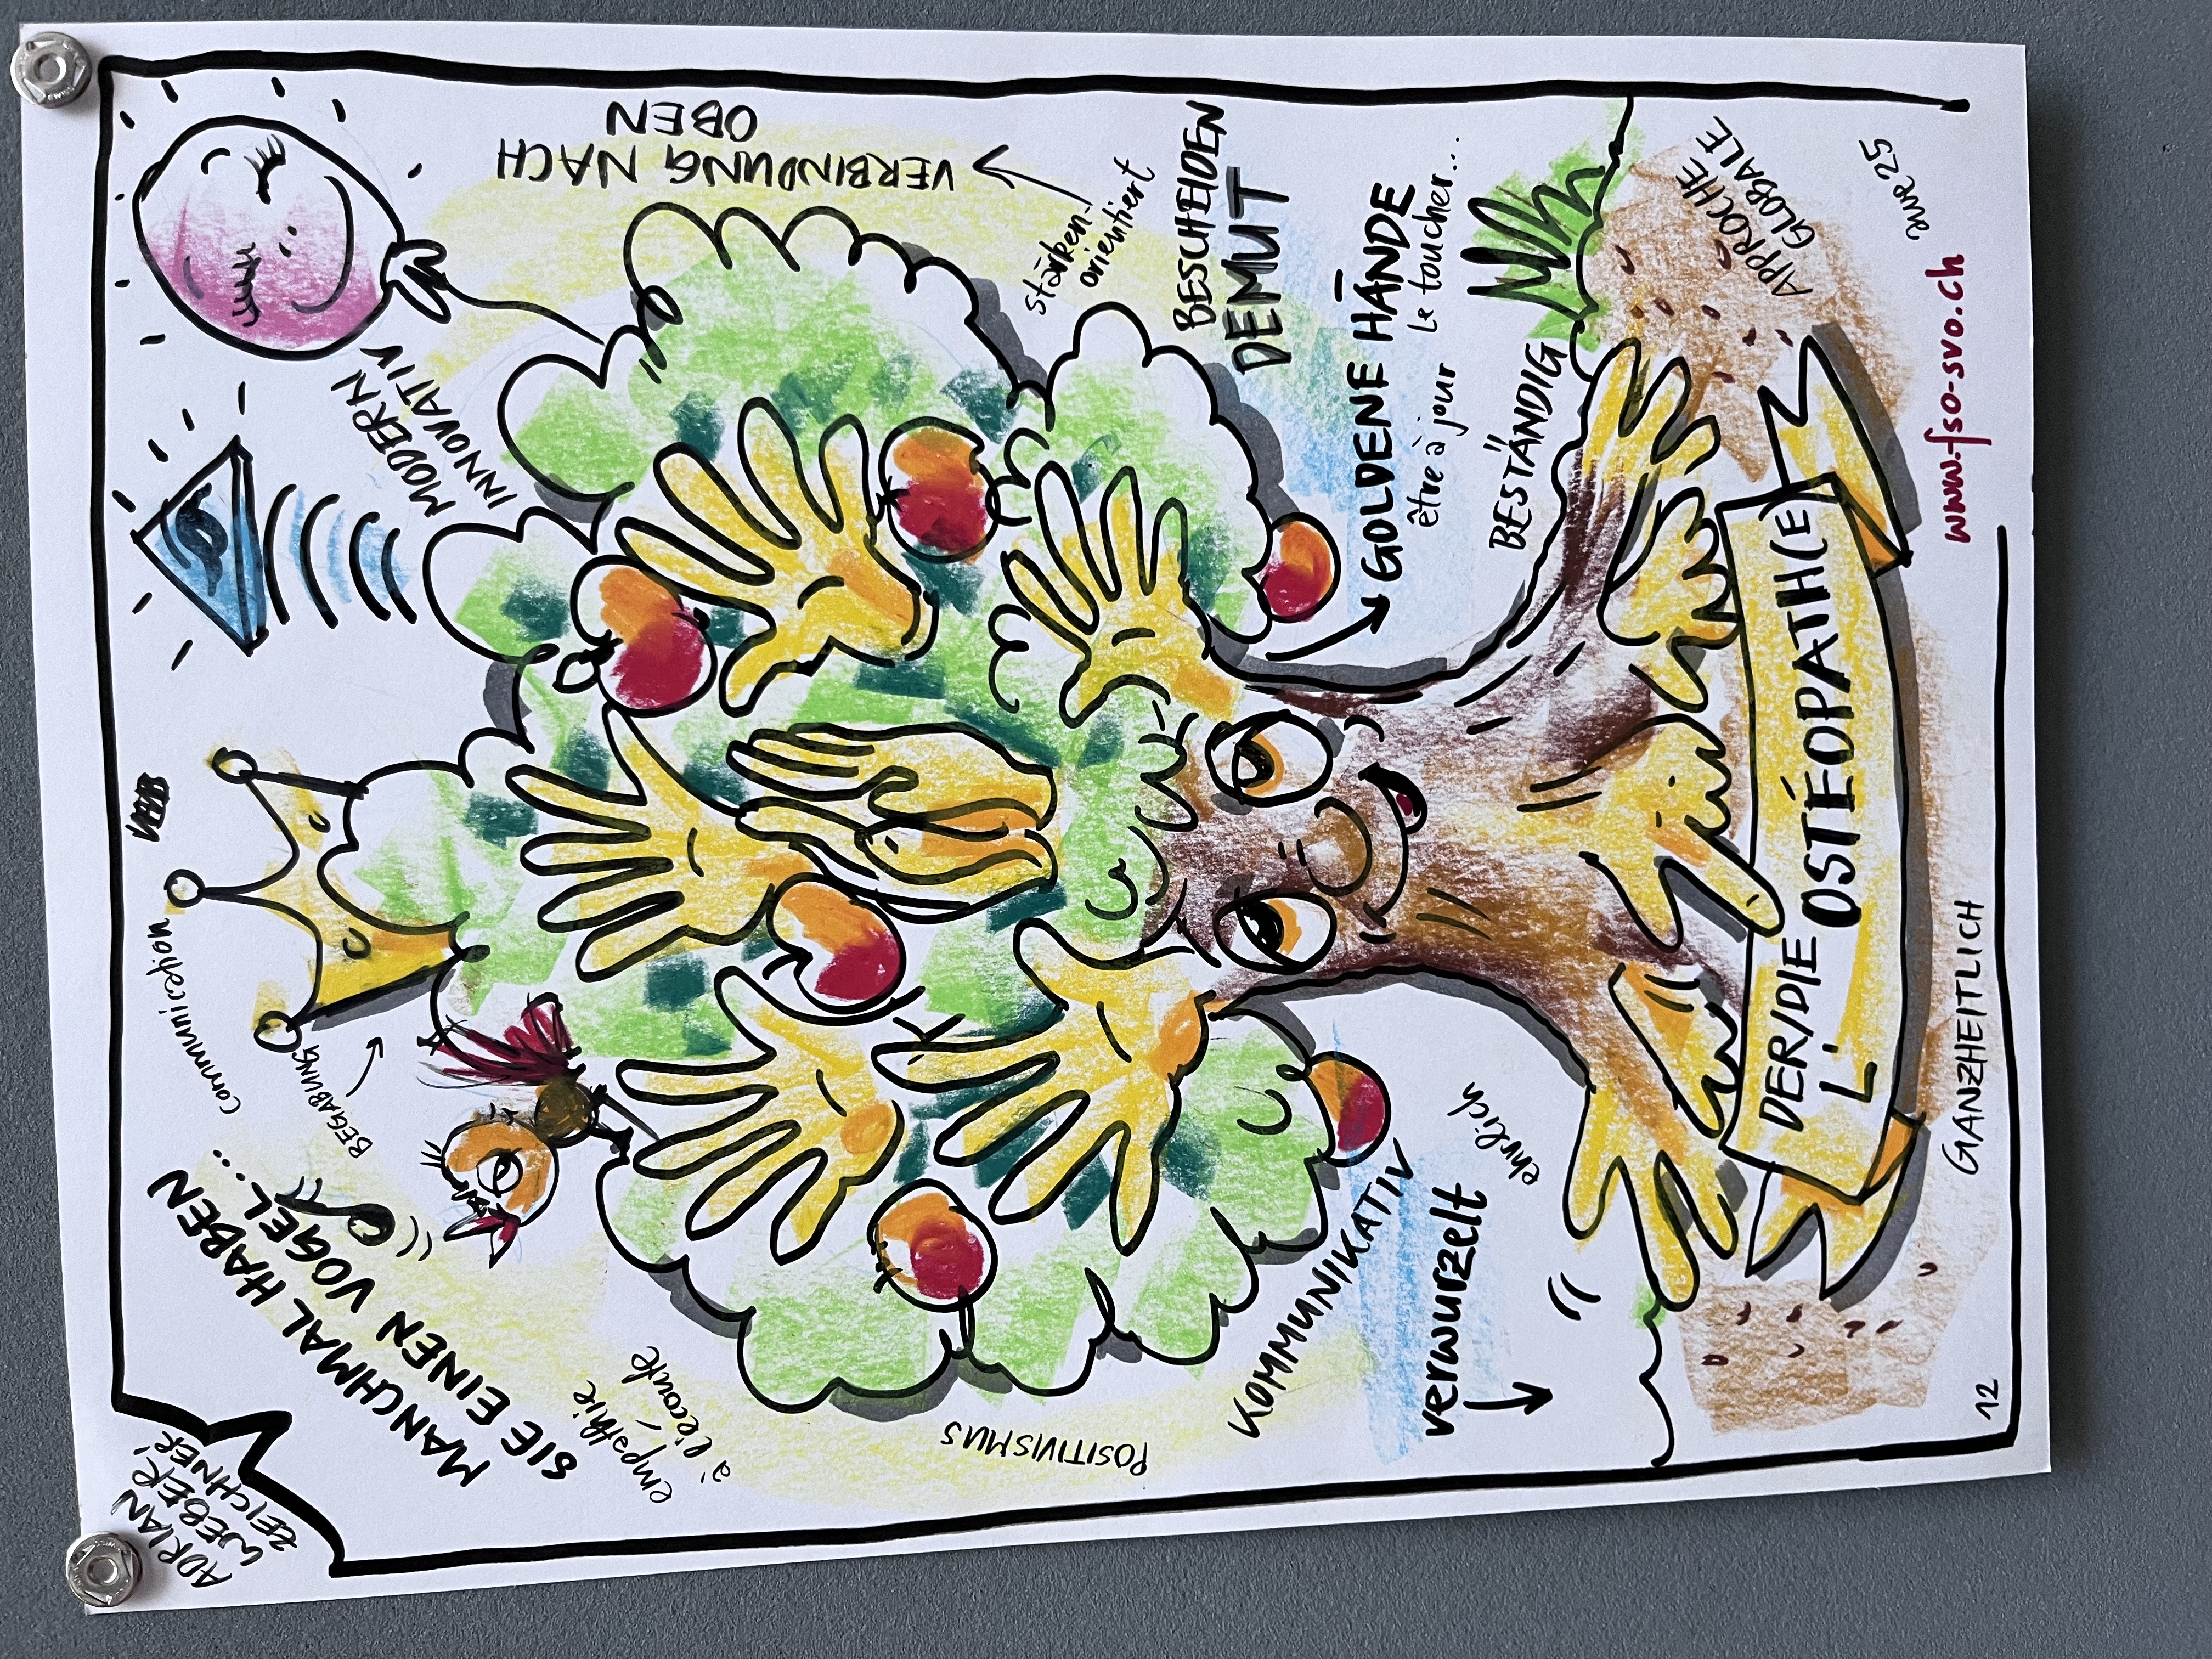 ADRIAN
WEBER
ZEICHNER
MANCHMAL HABEN
SIE EINEN VOGEL...
communication
BEGABUNG
MODERN
INNOVATIV
VERBINDUNG NACH
OBEN
stärken-
orientiert
empathie
à l'écoute
POSITIVISMUS
BESCHEIDEN
DEMUT
GOLDENE HÄNDE
être à jour le toucher...
KOMMUNIKATIV
verwurzelt
ehrlich
BESTÄNDIG
DER/DIE
L' OSTÉOPATH(E
APPROCHE
GLOBALE
GANZHEITLICH
12
www.fso-svo.ch
25